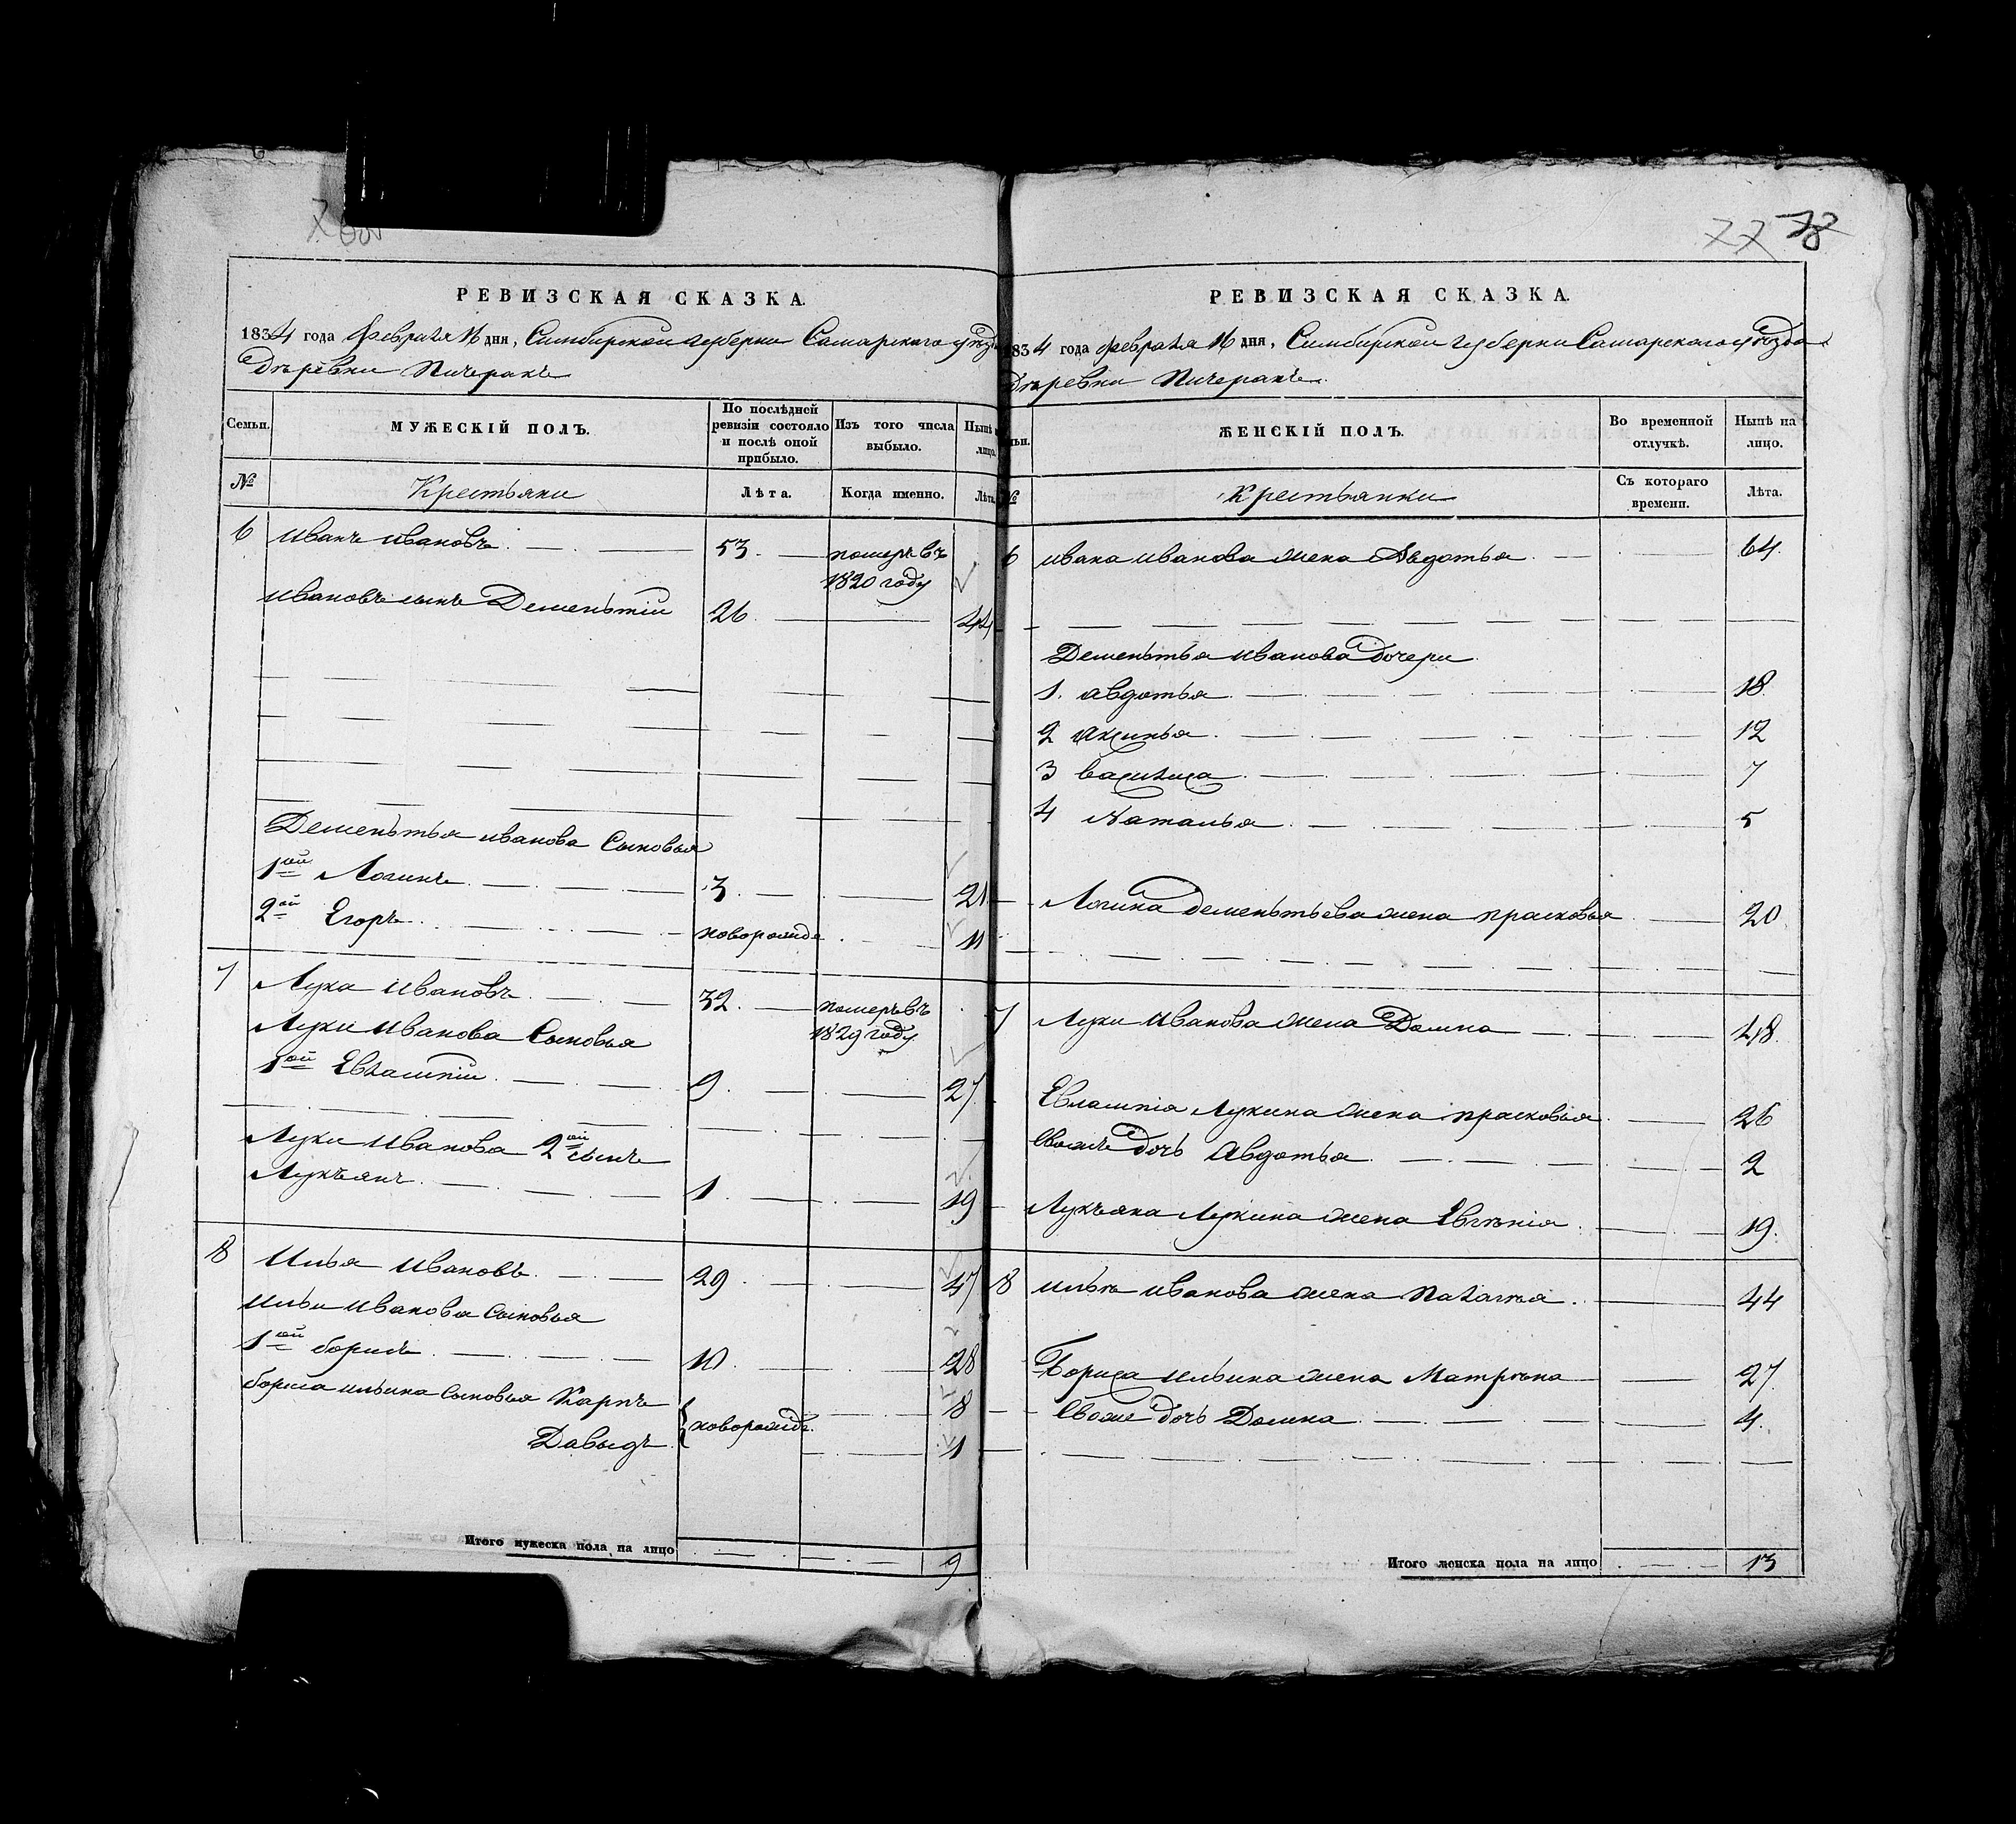 РЕВИЗСКАЯ СКАЗКА.
1834 года Февраля 16 дня, Симбирской губернии Самарского уезда
Деревни Пичеракъ
Семьи.
МУЖЕСКІЙ ПОЛЪ.
По послѣдней ревизіи состояло и послѣ оной прибыло.
Изъ того числа выбыло.
Нынѣ на лицо.
№
Крестьяни
Лѣта.
Когда именно.
Лѣта.
6 Иванъ Ивановъ 53. померъ въ
1820 году
Ивановъ сынъ Деменьтіи 26 44
Деменьтья Иванова Сыновья
1ой Логинъ 3 21
2ой Егоръ новорожде 11
7 Лука Ивановъ 32. померъ въ
1829 году
Луки Иванова Сыновья
1ой Евлампіи 9 27
Луки Иванова 2ой сынъ
Лукъянъ 1 19
8 Илья Ивановъ 29 47
Ильи Иванова Сыновья
1ой борисъ 10 28
бориса ильина Сыновья Карпъ 8
новорожде.
Давыдъ 1
Итого мужеска пола на лицо 9
78
РЕВИЗСКАЯ СКАЗКА.
1834 года Февраля 16 дня, Симбирской губерни Самарскаго уѣзда
Деревни Пичеракъ
ЖЕНСКІЙ ПОЛЪ.
Во временной отлучкѣ.
Нынѣ на лицо.
№
Крестьянки
Съ котораго времени.
Лѣта.
6 ивана иванова жена Авдотья 64
Деменьтья иванова дочери
1. авдотья 18
2 Аксинья 12
3 василиса 7
4 Наталья 5
Логина деменьтьева жена прасковья 20
7 Луки Иванова жена Домна 48
Евлампія Лукина жена прасковья 26
Евож дочь Авдотья 2
Лукъяна Лукина жена Евгенія 19.
8 ильи иванова жена Палагѣя 44
Бориса ильина жена Матрѣна 27
Евоже дочь Домна 4.
Итого женска пола на лицо 13